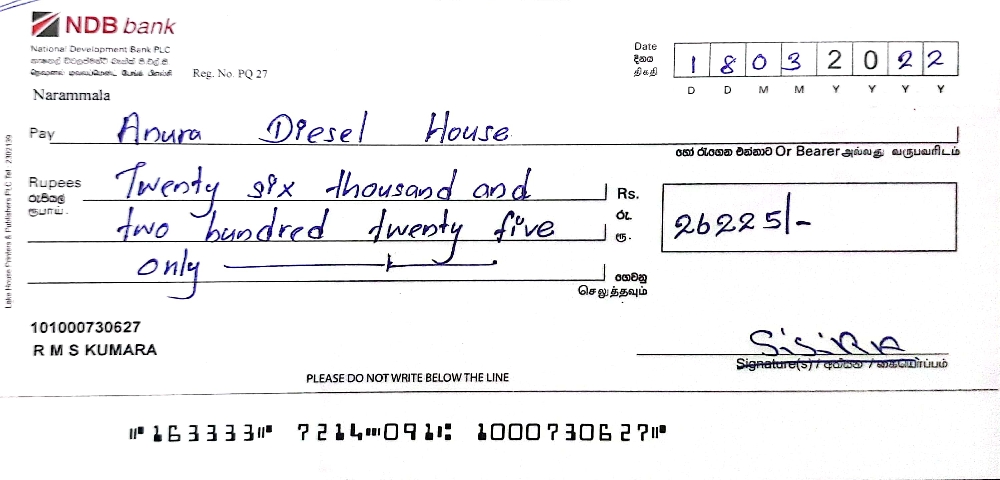 NDB bank
National Development Bank PLC
Reg. No. PQ 27
Narammala
Date
දිනය
திகதி
1 8 0 3 2 0 2 2
D D M M Y Y Y Y
Pay Anura Diesel House
හෝ රැගෙන එන්නාට Or Bearer அல்லது வருபவரிடம்
Rupees Twenty six thousand and
රුපියල්
ரூபாய்
two hundred twenty five
only
Rs.
රු.
ரூ.
26225/-
ගෙවනු
செலுத்தவும்
101000730627
R M S KUMARA
SiSiRA
Signature(s) / අත්සන / கையொப்பம்
PLEASE DO NOT WRITE BELOW THE LINE
⑈163333⑈ 7214⑉091⑆ 1000730627⑈
Lake House Printers & Publishers PLC Tel